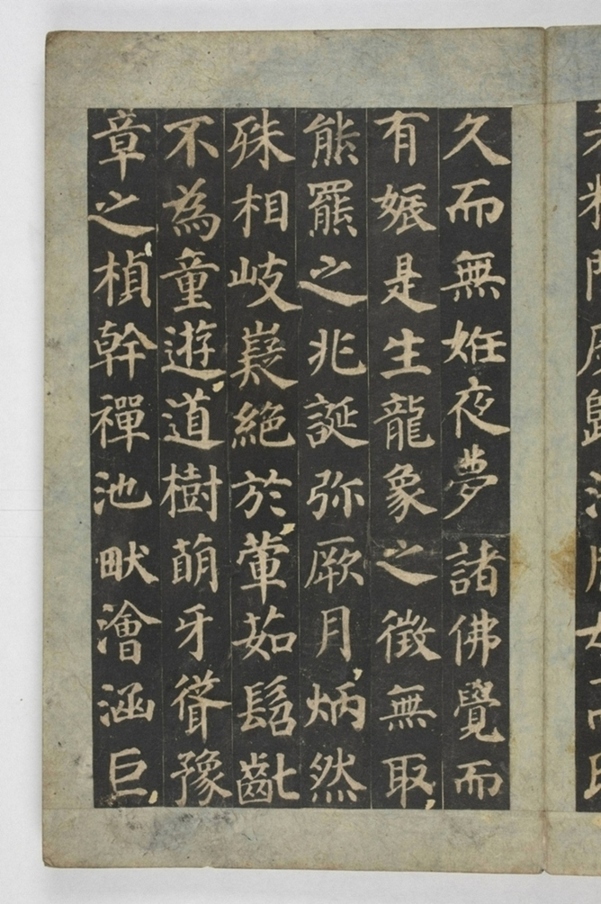 久而無妊夜夢諸佛覺而
有娠是生龍象之徵無取
熊羆之兆誕弥厥月炳然
殊相岐嶷絶於葷茹髫齔
不為童遊道樹萌牙聳豫
章之楨幹禪池畎澮涵巨